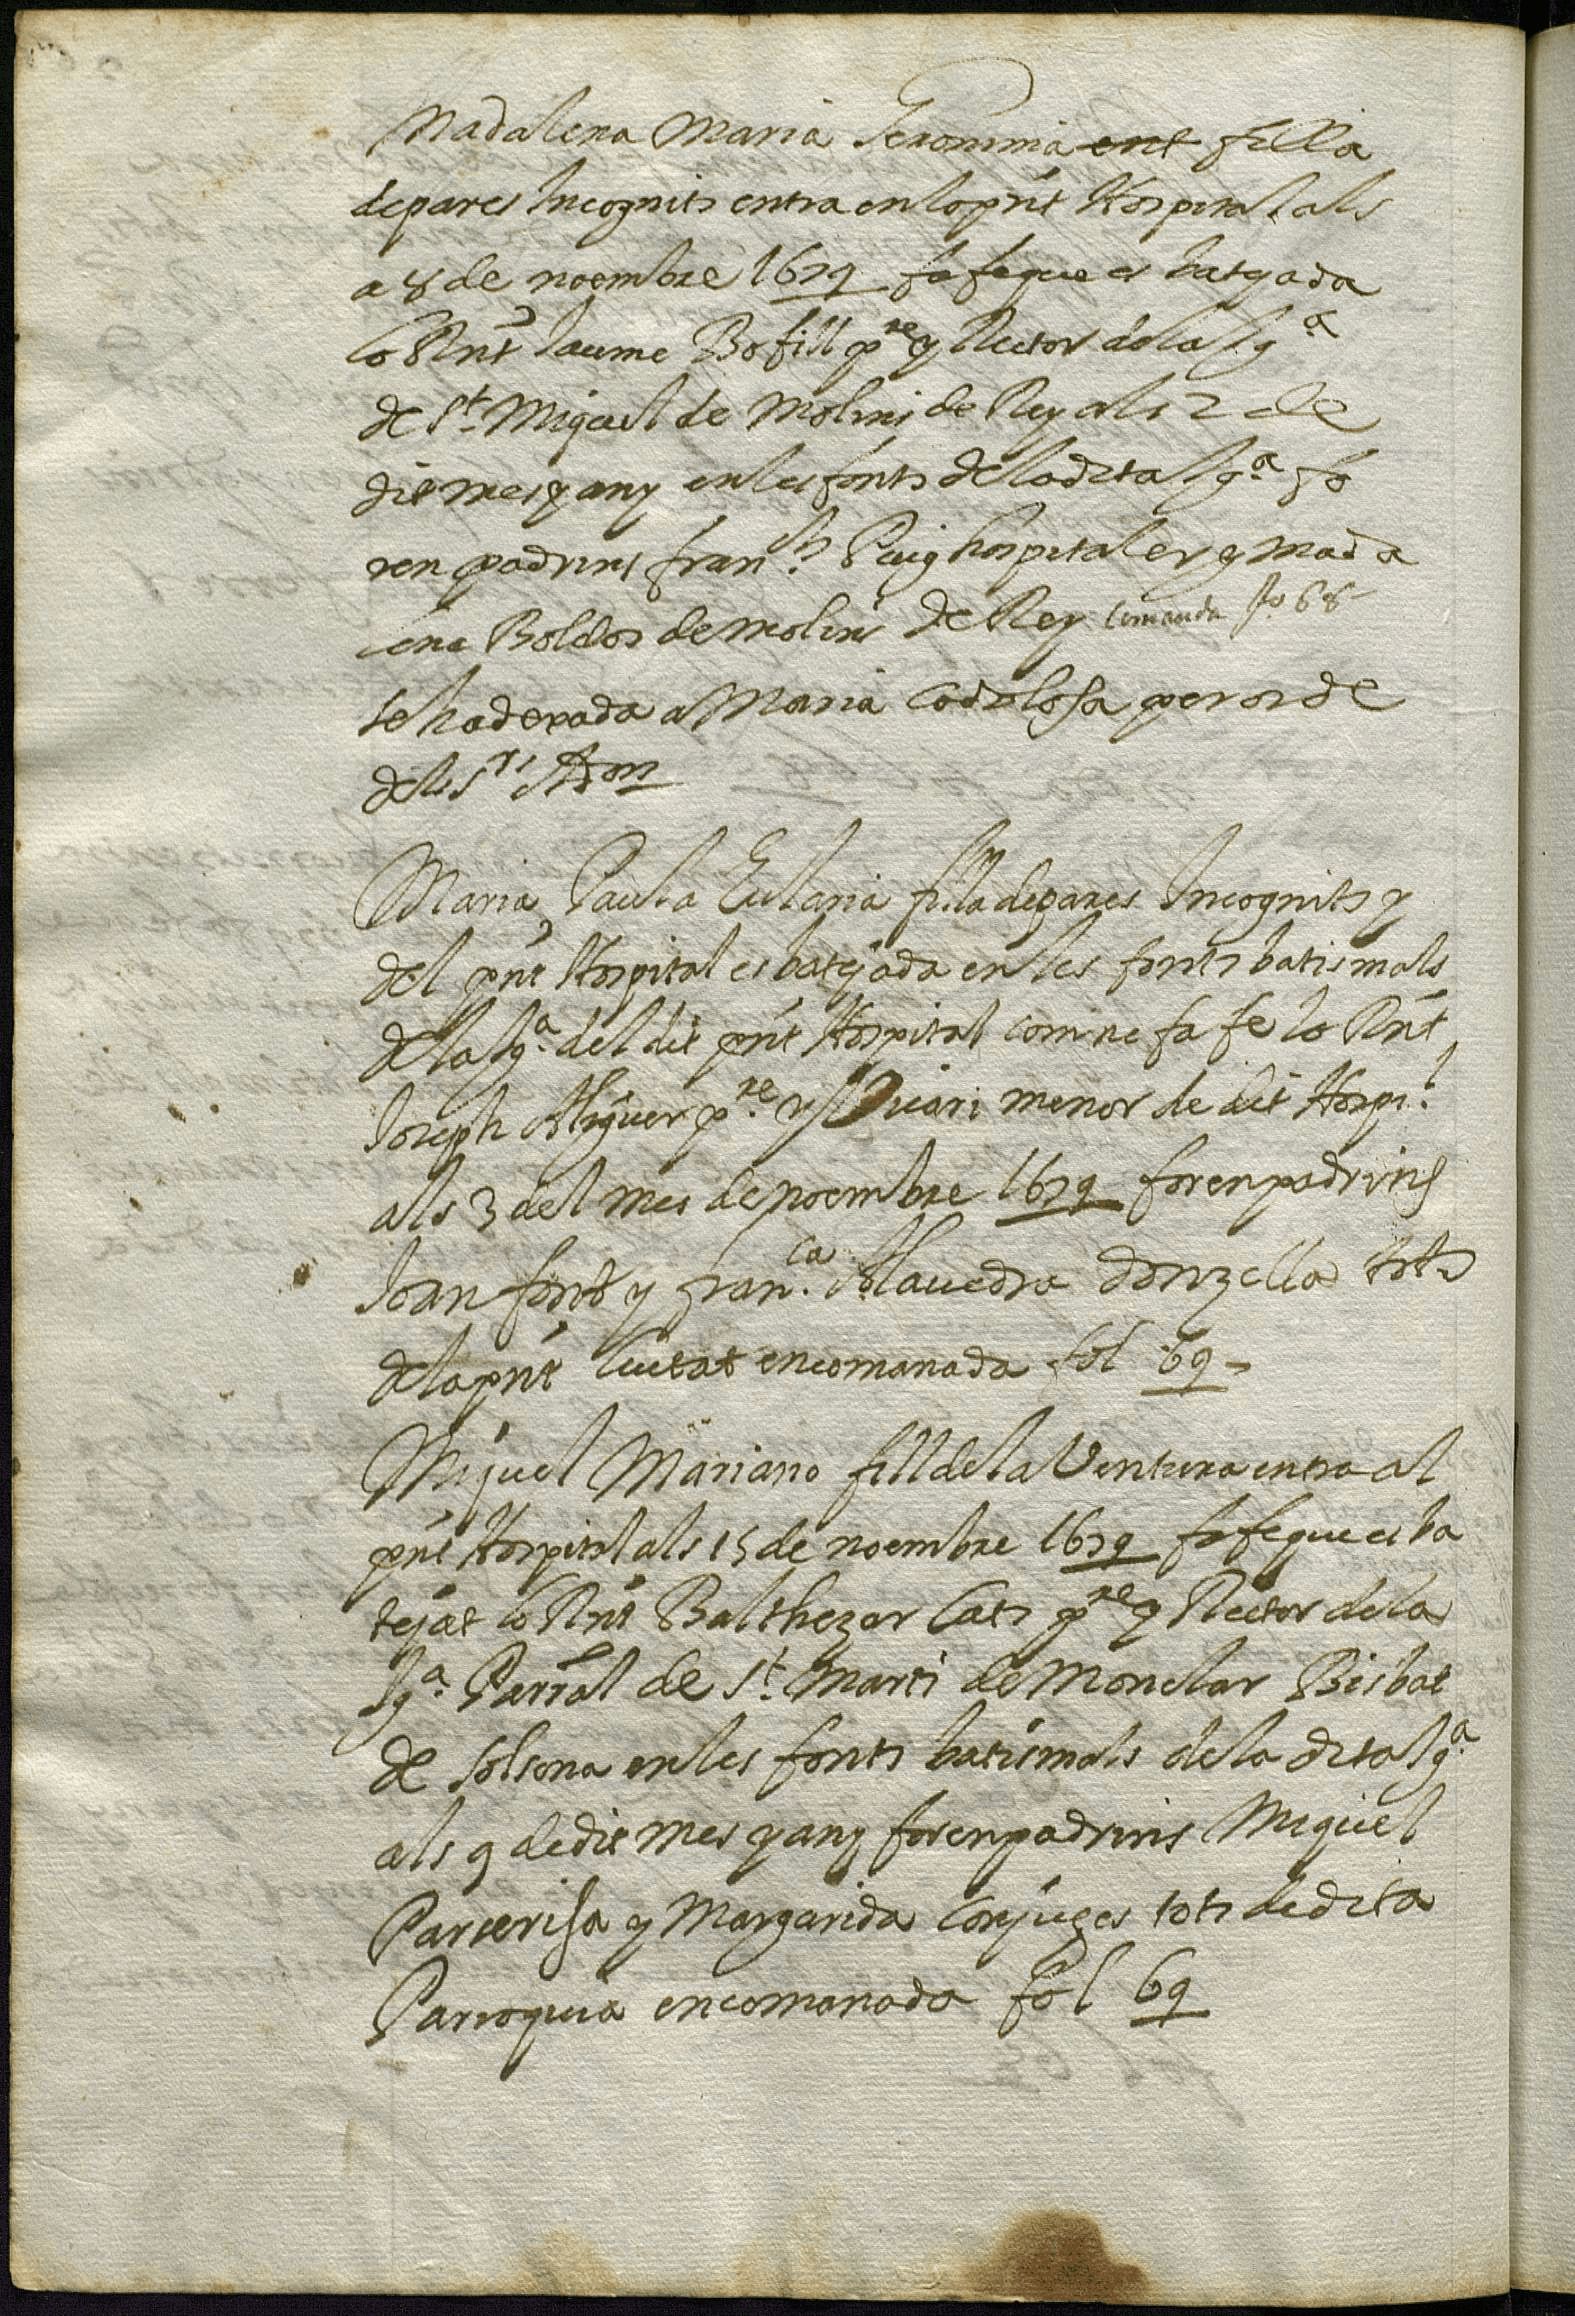 Madalena Maria Geronima ent filla
de pares Incognits entra en lo pñt Hospital als
a 8 de noembre 1679 fa fe que es batejada
lo Rnt Jaume Bofill pre y Rector de la Iga
de St Miquel de Molins de Rey als 2 de
dit mes y any en les fonts de la dita Iga fo
ren padrins franch Puig hospitaler y Mada
lena Boldos de molins de Rey Comanda fo 68
se ha dexada a Maria Codolosa per orde
dels srs Adon
Maria Paula Eularia filla de pares Incognits y
del pñt Hospital es batejada en les fonts batismals
de la Iga del dit pñt Hospital com ne fa fe lo Rnt
Joseph Aliguer pre y Vicari menor de dit Hospl
als 3 del mes de noembre 1679 foren padrins
Joan font y Franca Alavedra donzella tots
de la pñt Ciutat encomanada fol 69
Miquel Mariano fill de la Ventura entra al
pñt Hospital als 15 de noembre 1679 fa fe que es ba
tejat lo Rnt Balthezar Cats pre y Rector de la
Iga Parral de St Marti de Monclar Bisbat
de Solsona en les fonts batismals de la dita Iga
als 9 de dit mes y any foren padrins Miquel
Parcerisa y Margarida Conjuges tots de dita
Parroquia encomanada fol 69